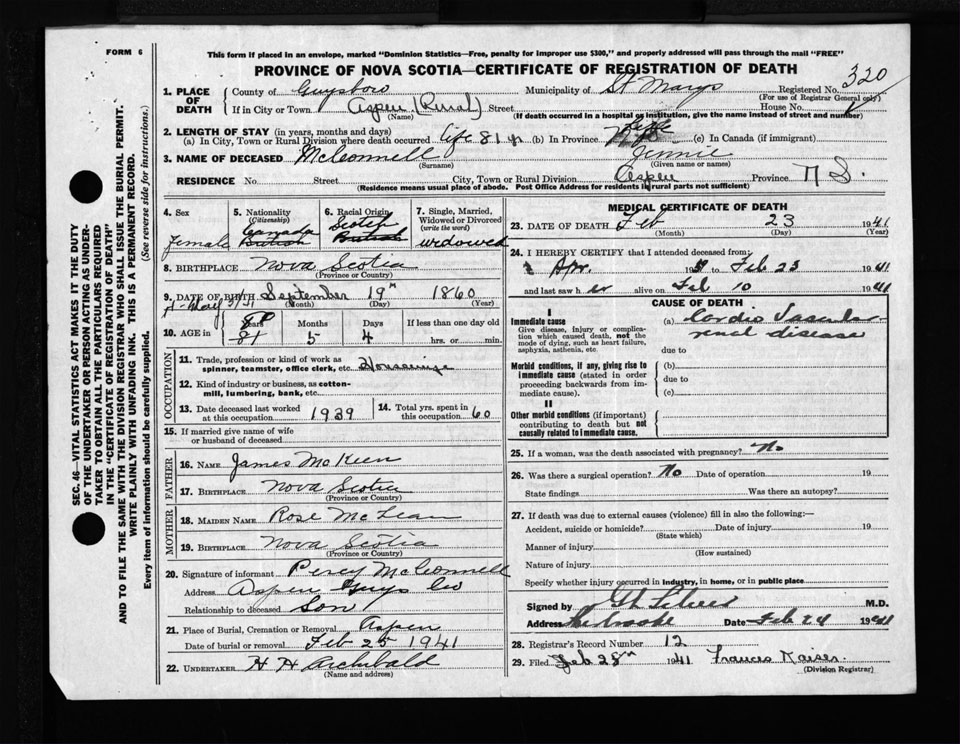 FORM 6
This form if placed in an envelope, marked "Dominion Statistics—Free, penalty for improper use $300," and properly addressed will pass through the mail "FREE"
PROVINCE OF NOVA SCOTIA—CERTIFICATE OF REGISTRATION OF DEATH
320
1. PLACE OF DEATH County of Guysboro Municipality of St Marys Registered No.
(For use of Registrar General only)
If in City or Town Aspen (Rural) Street House No.
(Name) (If death occurred in a hospital or institution, give the name instead of street and number)
2. LENGTH OF STAY (in years, months and days)
(a) In City, Town or Rural Division where death occurred life 81 y (b) In Province life (c) In Canada (if immigrant)
3. NAME OF DECEASED McConnell Jennie
(Surname) (Given name or names)
RESIDENCE No. Street City, Town or Rural Division Aspen Province N S.
(Residence means usual place of abode. Post Office Address for residents in rural parts not sufficient)
4. Sex 5. Nationality (Citizenship) 6. Racial Origin 7. Single, Married, Widowed or Divorced (write the word)
Female Canada British Scotch British widowed
8. BIRTHPLACE Nova Scotia
(Province or Country)
9. DATE OF BIRTH September 19th 1860
(Month) (Day) (Year)
May 31/51
10. AGE in Years Months Days If less than one day old
80 81 5 4 hrs. or min.
OCCUPATION
11. Trade, profession or kind of work as spinner, teamster, office clerk, etc.
12. Kind of industry or business, as cotton-mill, lumbering, bank, etc.
13. Date deceased last worked at this occupation 1939 14. Total yrs. spent in this occupation 60
15. If married give name of wife or husband of deceased
FATHER
16. NAME James McKeen
17. BIRTHPLACE Nova Scotia
(Province or Country)
MOTHER
18. MAIDEN NAME Rose McLean
19. BIRTHPLACE Nova Scotia
(Province or Country)
20. Signature of informant Percy McConnell
Address Aspen Guys Co
Relationship to deceased Son
21. Place of Burial, Cremation or Removal Aspen
Date of burial or removal Feb 25 1941
22. UNDERTAKER H H Archibald
(Name and address)
MEDICAL CERTIFICATE OF DEATH
23. DATE OF DEATH Feb 23 1941
(Month) (Day) (Year)
24. I HEREBY CERTIFY that I attended deceased from:
Apr. 19 to Feb 23 1941
and last saw her alive on Feb 10 1941
CAUSE OF DEATH
I
Immediate cause (a) Cardio Vascular renal disease
Give disease, injury or complication which caused death, not the mode of dying, such as heart failure, asphyxia, asthenia, etc.
due to
Morbid conditions, if any, giving rise to immediate cause (stated in order proceeding backwards from immediate cause).
(b)
due to
(c)
II
Other morbid conditions (if important) contributing to death but not causally related to immediate cause.
25. If a woman, was the death associated with pregnancy? No
26. Was there a surgical operation? No Date of operation 19
State findings Was there an autopsy?
27. If death was due to external causes (violence) fill in also the following:—
Accident, suicide or homicide? Date of injury 19
(State which)
Manner of injury
(How sustained)
Nature of injury
Specify whether injury occurred in industry, in home, or in public place
Signed by M.D.
Address Sherbrooke Date Feb 24 1941
28. Registrar's Record Number 12
29. Filed Feb 28th 1941 Frances Kaiser
(Division Registrar)
SEC. 46—VITAL STATISTICS ACT MAKES IT THE DUTY
OF THE UNDERTAKER OR PERSON ACTING AS UNDER-
TAKER TO OBTAIN ALL THE PARTICULARS REQUIRED
IN THE "CERTIFICATE OF REGISTRATION OF DEATH"
AND TO FILE THE SAME WITH THE DIVISION REGISTRAR WHO SHALL ISSUE THE BURIAL PERMIT.
WRITE PLAINLY WITH UNFADING INK. THIS IS A PERMANENT RECORD.
Every item of information should be carefully supplied. (See reverse side for instructions.)